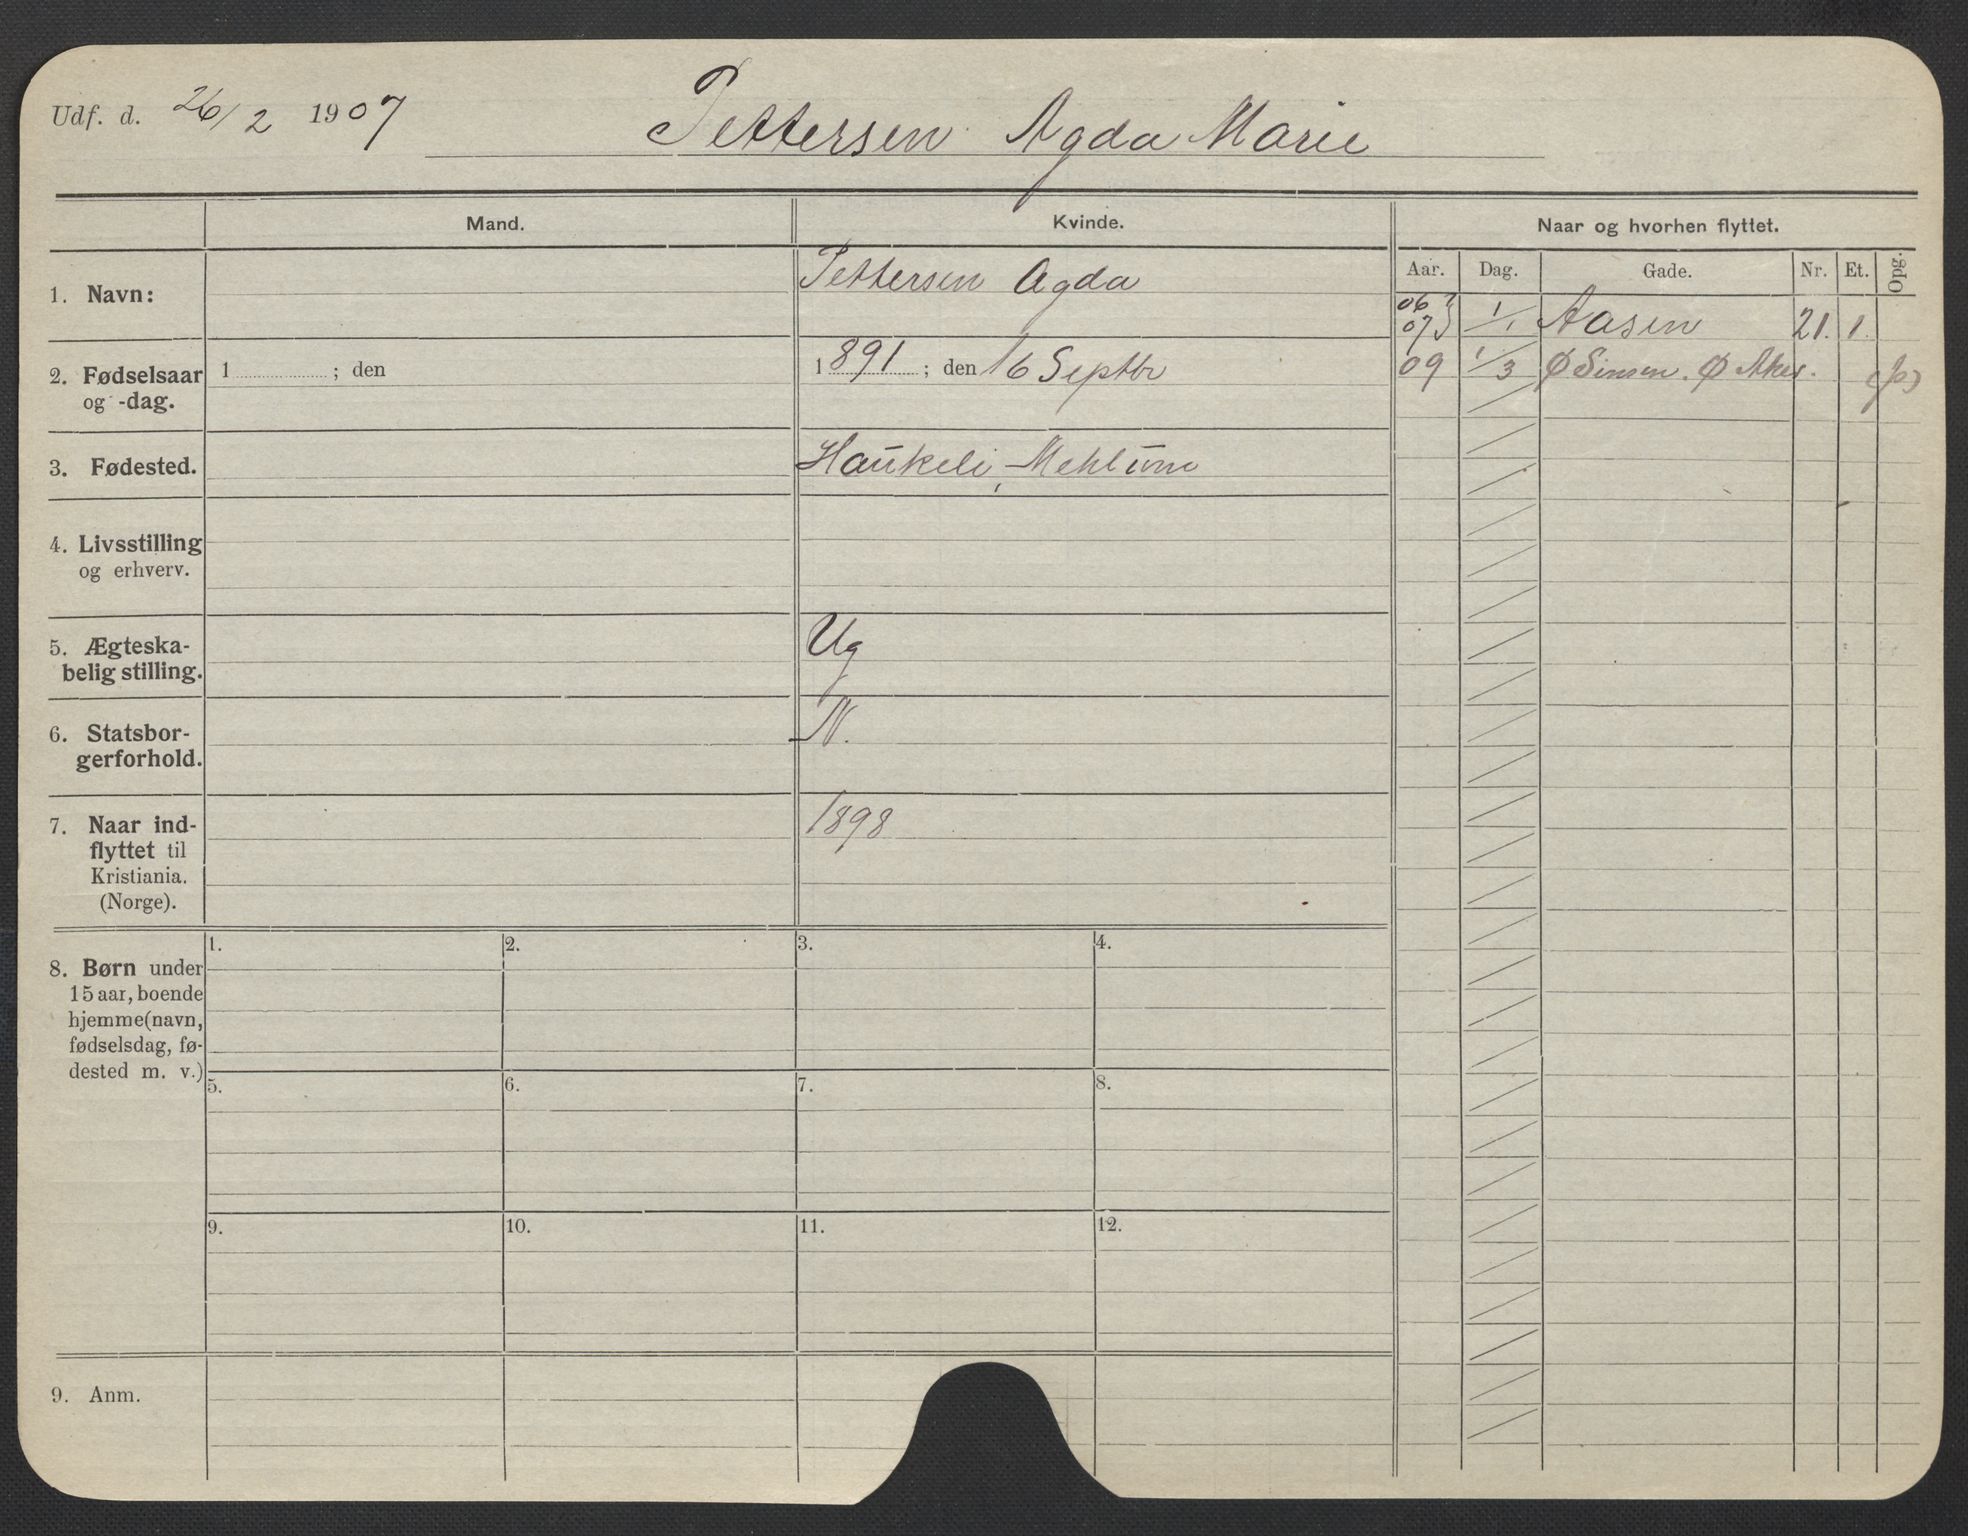 Udf. d. 26/2 1907 Pettersen Agda Marie
Mand. Kvinde. Naar og hvorhen flyttet.
Aar. Dag. Gade. Nr. Et. Opg.
1. Navn: Pettersen Agda
06 07 1/1 Aasen 21. 1.
2. Fødselsaar og -dag.
1 ; den
1891 ; den 16 Septbr
09 1/3 Ø Sinsen. Ø Aker.
3. Fødested. Haukeli, Mehlum
4. Livsstilling
og erhverv.
5. Ægteska-
belig stilling.
Ug
6. Statsbor-
gerforhold.
N.
7. Naar ind-
flyttet til
Kristiania.
(Norge).
1898
8. Børn under
15 aar, boende
hjemme (navn,
fødselsdag, fø-
dested m. v.)
1. 2. 3. 4.
5. 6. 7. 8.
9. 10. 11. 12.
9. Anm.